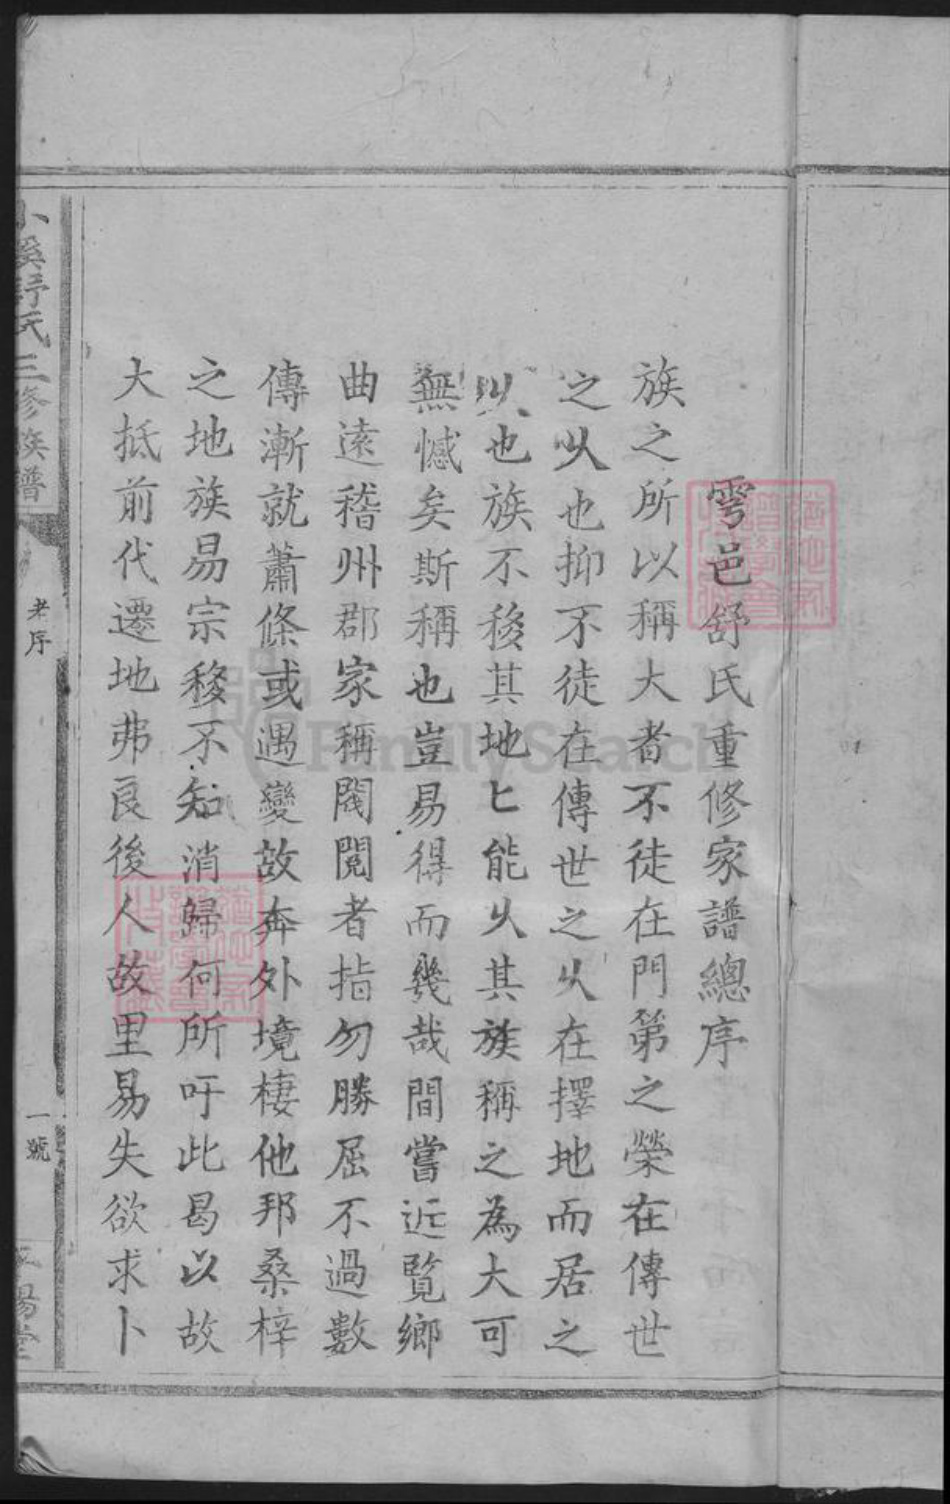 雩邑舒氏重修家譜總序
族之所以稱大者不徒在門第之榮在傳世
之久也抑不徒在傳世之久在擇地而居之
久也族不移其地匕能久其族稱之為大可
無憾矣斯稱也豈易得而幾哉間嘗近覽鄉
曲遠稽州郡家稱閥閱者指勿勝屈不過數
傳漸就蕭條或遇變故奔外境棲他邦桑梓
之地族易宗移不知消歸何所吁此曷以故
大抵前代遷地弗良後人故里易失欲求卜
小溪舒氏三修族譜
老序
一號
陽堂
FamilySearch